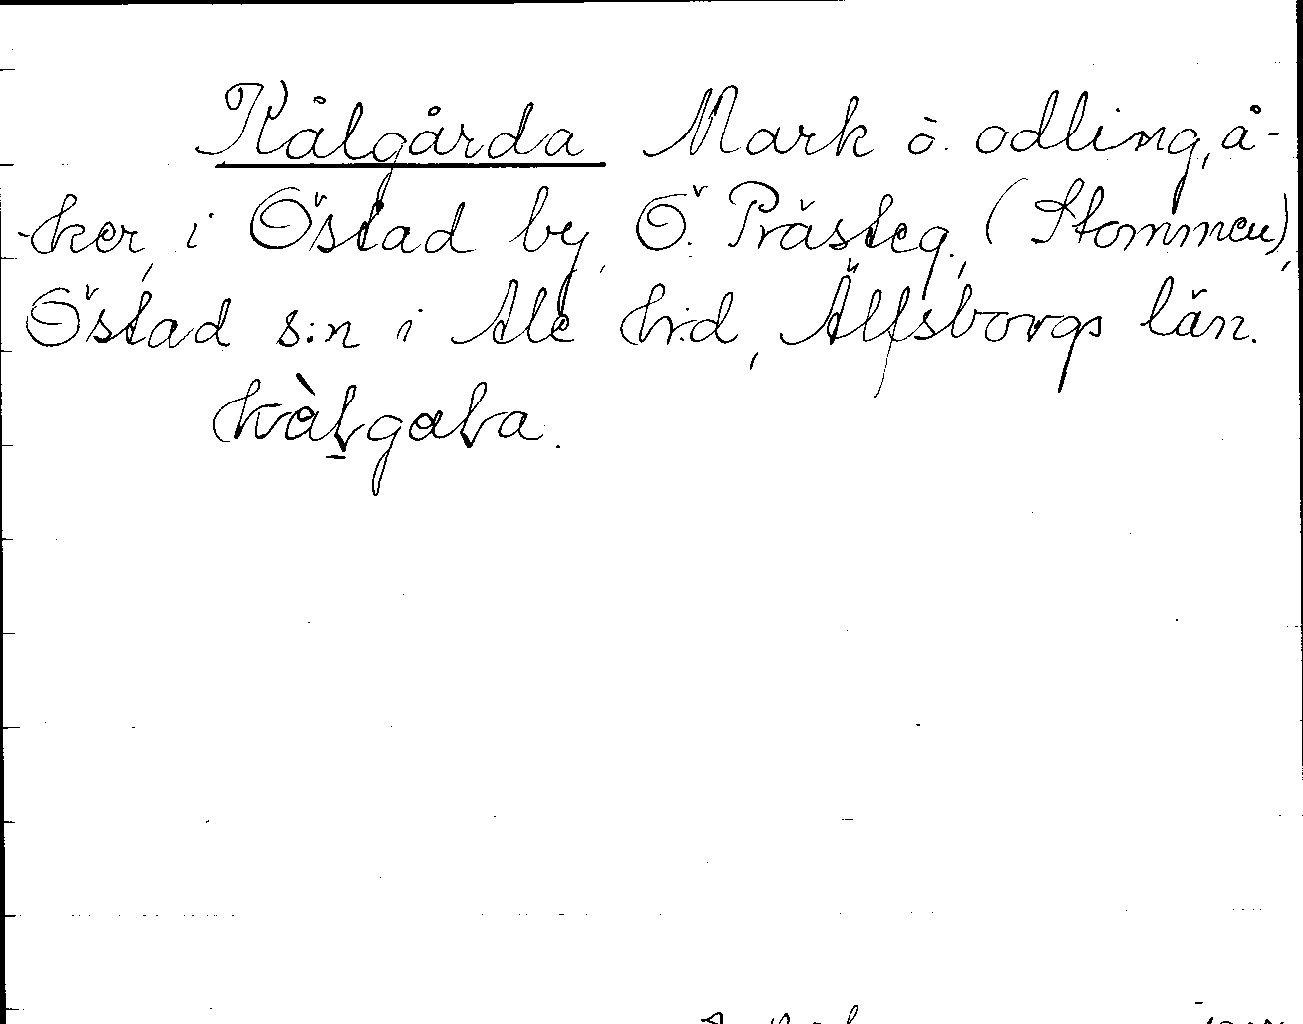 Kålgårda Mark o. odling, å-
-ker, i Östad by, Ö. Prästeg., (Stommen),
Östad s:n i Ale h:d, Älfsborgs län.